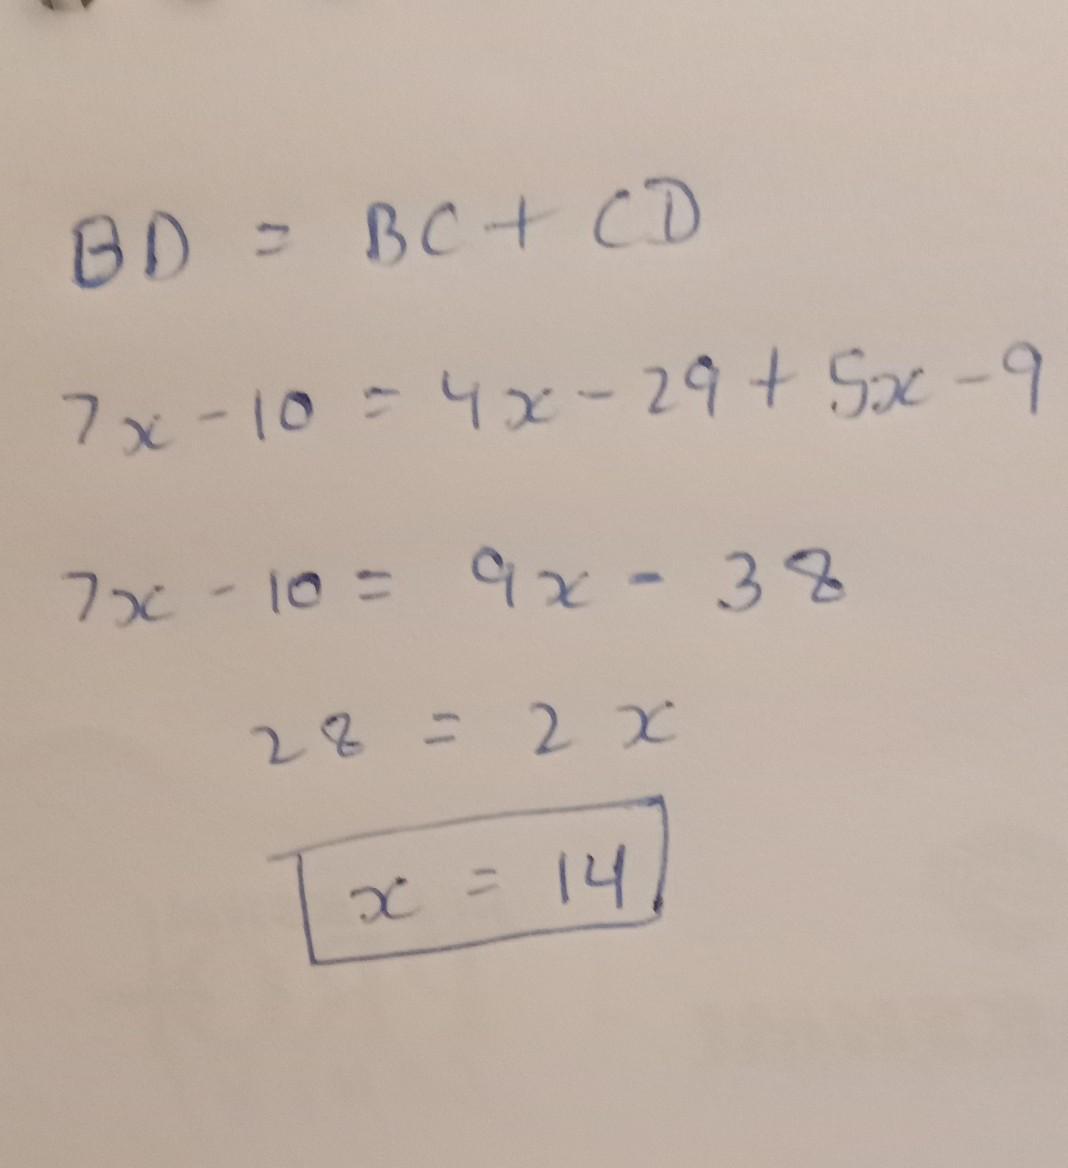 BD = BC + CD
7x - 10 = 4x - 29 + 5x - 9
7x - 10 = 9x - 38
28 = 2x
x = 14